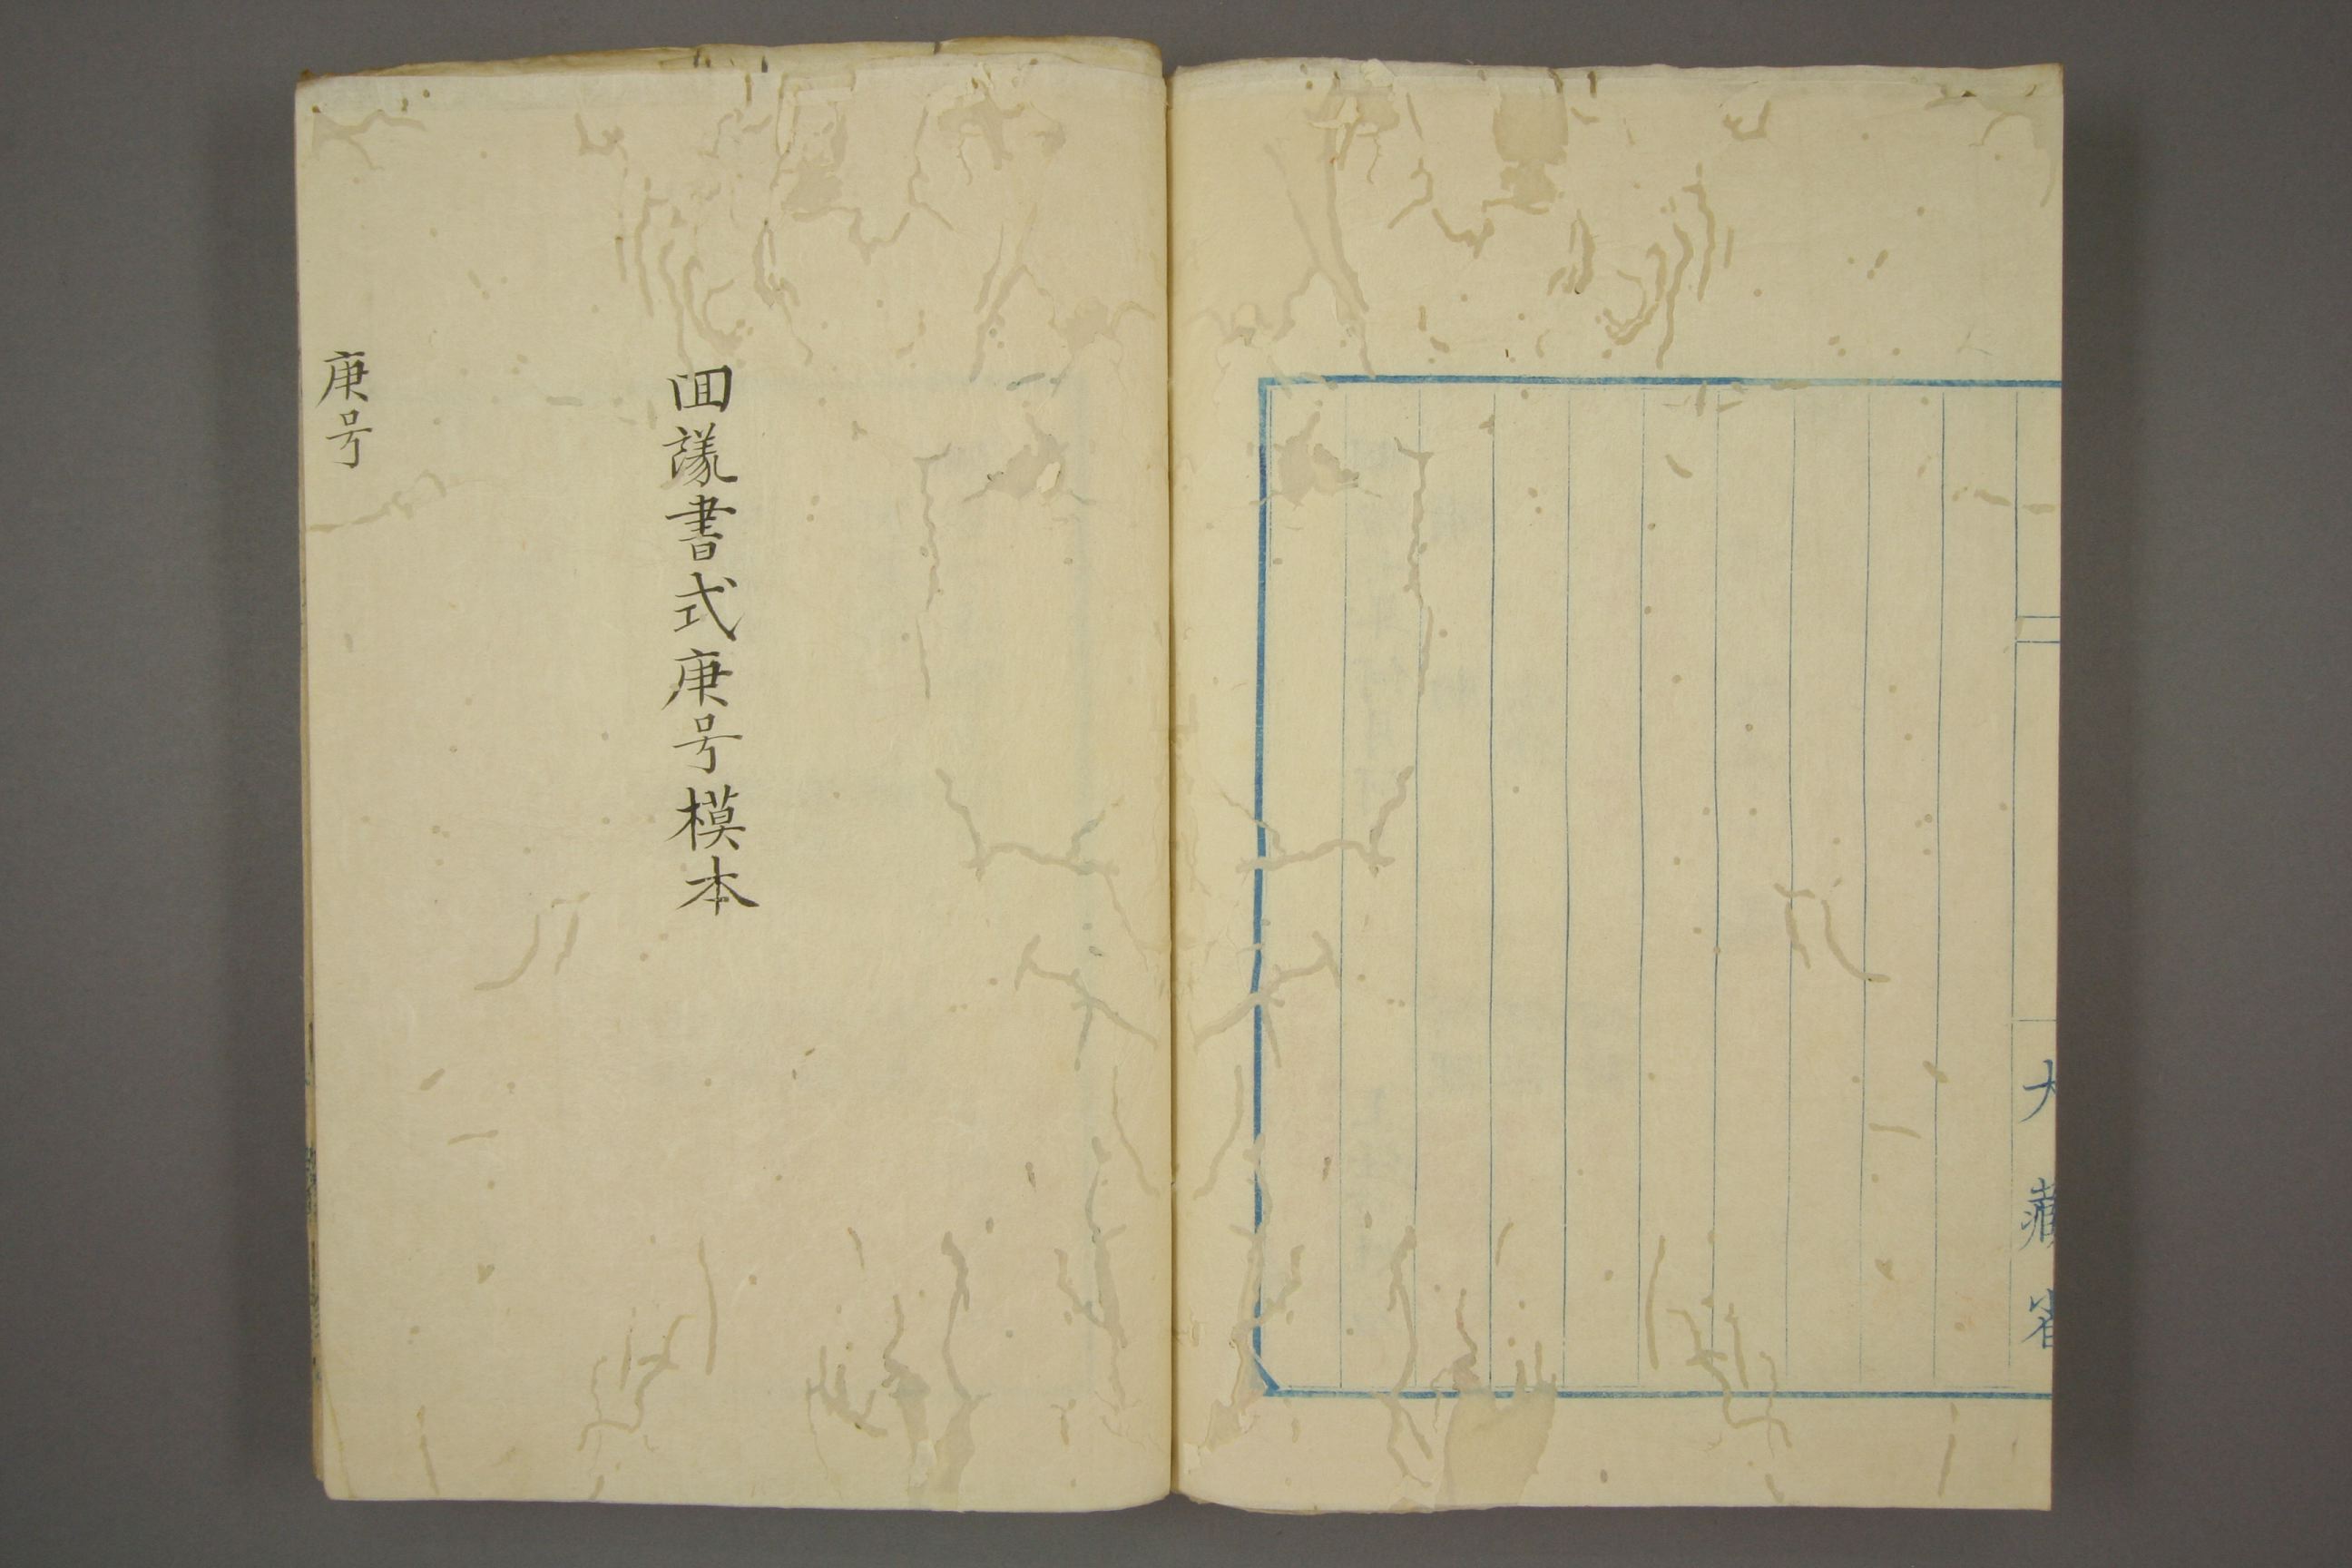 大藏省
回議書式庚号模本
庚号